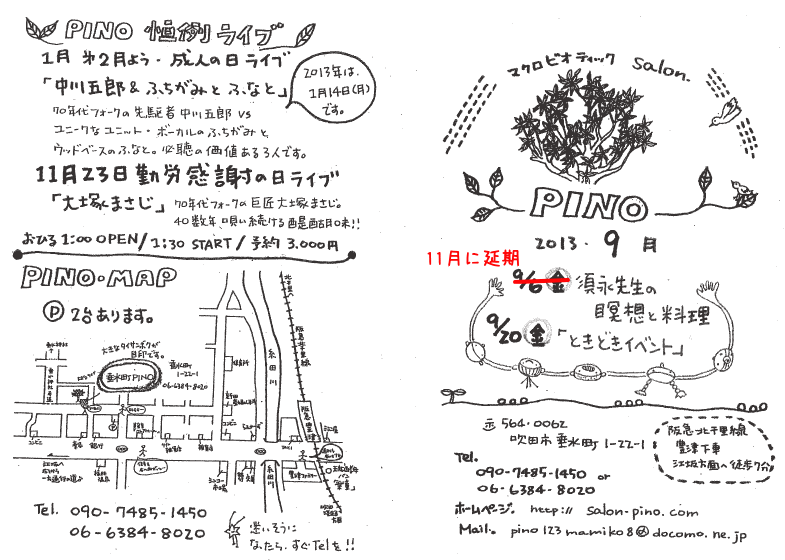 PINO 恒例ライブ
1月 第2月よう・成人の日ライブ
「中川五郎 & ふちがみとふなと」
2013年は、
1月14日(月)
です。
70年代フォークの先駆者 中川五郎 VS
ユニークなユニット・ボーカルのふちがみと、
ウッドベースのふなと。必聴の価値ある3人です。
11月23日 勤労感謝の日ライブ
「大塚まさじ」
70年代フォークの巨匠 大塚まさじ。
40数年、唄い続ける
おひる 1:00 OPEN / 1:30 START / 予約 3.000円
PINO・MAP
P 2台あります。
大きなタイサンボクが
目印です。
垂水町PINO
垂水町
1-22-1
06-6384-8020
糸田川
阪急千里線
コンビニ
Tel. 090-7485-1450
06-6384-8020
迷いそうに
なったら、すぐTelを!!
マクロビオティック salon.
PINO
2013・9月
11月に延期
9/6 金 須永先生の
瞑想と料理
9/20 金 「ときどきイベント」
〒564.0062
吹田市垂水町 1-22-1
Tel.
090-7485-1450 or
06-6384-8020
阪急北千里線
豊津下車
江坂方面へ徒歩7分
ホームページ. http:// salon-pino.com
Mail. pino123mamiko8@docomo.ne.jp